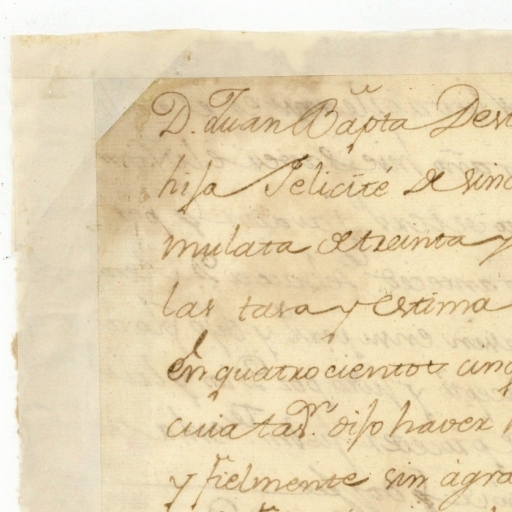 D. Juan Bap.ta Des
hija Felicité de sinc
mulata de treinta y
las tasa y estima
en quatrocientos cinc
cuia tas.n dijo haver
y fielmente sin agra